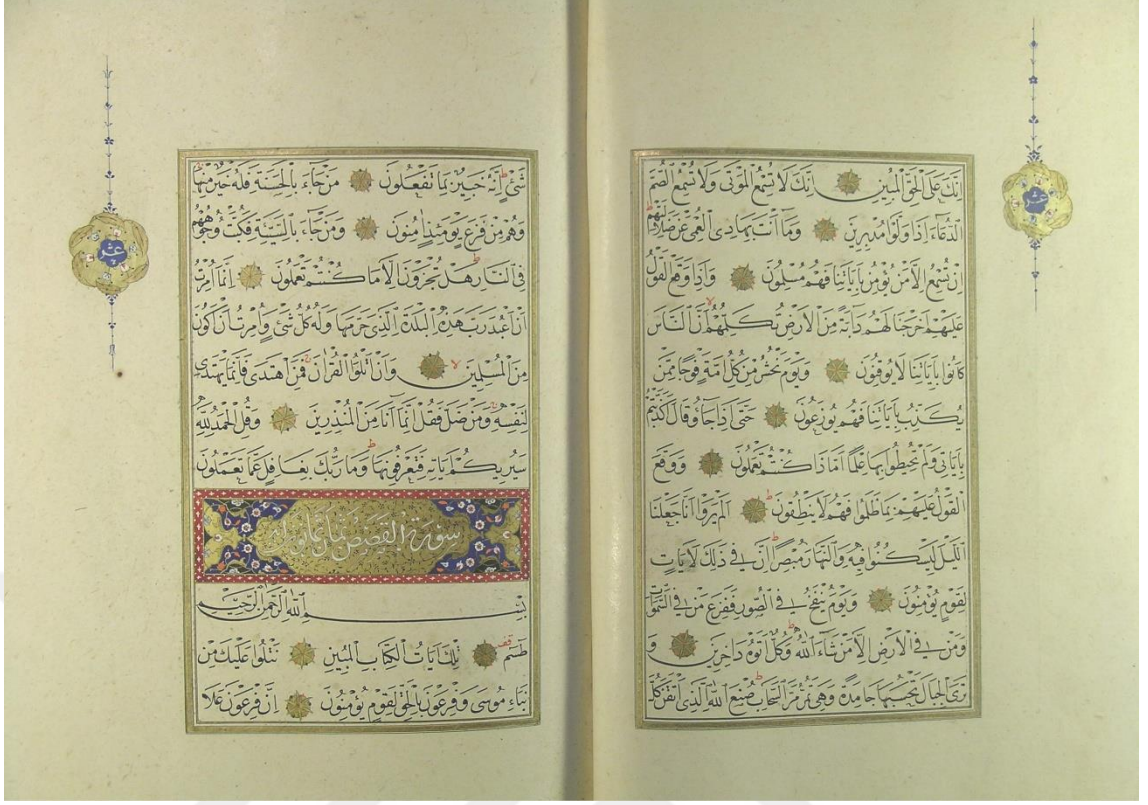 عشر
اِنَّكَ عَلَى الْحَقِّ الْمُبٖينِ اِنَّكَ لَا تُسْمِعُ الْمَوْتٰى وَلَا تُسْمِعُ الصُّمَّ
الدُّعَٓاءَ اِذَا وَلَّوْا مُدْبِرٖينَ وَمَٓا اَنْتَ بِهَادِى الْعُمْىِ عَنْ ضَلَالَتِهِمْ
اِنْ تُسْمِعُ اِلَّا مَنْ يُؤْمِنُ بِاٰيَاتِنَا فَهُمْ مُسْلِمُونَ وَاِذَا وَقَعَ الْقَوْلُ
عَلَيْهِمْ اَخْرَجْنَا لَهُمْ دَٓابَّةً مِنَ الْاَرْضِ تُكَلِّمُهُمْ اَنَّ النَّاسَ
كَانُوا بِاٰيَاتِنَا لَا يُوقِنُونَ وَيَوْمَ نَحْشُرُ مِنْ كُلِّ اُمَّةٍ فَوْجًا مِمَّنْ
يُكَذِّبُ بِاٰيَاتِنَا فَهُمْ يُوزَعُونَ حَتّٰٓى اِذَا جَٓاؤُ قَالَ اَكَذَّبْتُمْ
بِاٰيَاتٖى وَلَمْ تُحٖيطُوا بِهَا عِلْمًا اَمَّاذَا كُنْتُمْ تَعْمَلُونَ وَوَقَعَ
الْقَوْلُ عَلَيْهِمْ بِمَا ظَلَمُوا فَهُمْ لَا يَنْطِقُونَ اَلَمْ يَرَوْا اَنَّا جَعَلْنَا
الَّيْلَ لِيَسْكُنُوا فٖيهِ وَالنَّهَارَ مُبْصِرًا اِنَّ فٖى ذٰلِكَ لَاٰيَاتٍ
لِقَوْمٍ يُؤْمِنُونَ وَيَوْمَ يُنْفَخُ فِى الصُّورِ فَفَزِعَ مَنْ فِى السَّمٰوَاتِ
وَمَنْ فِى الْاَرْضِ اِلَّا مَنْ شَٓاءَ اللّٰهُ وَكُلٌّ اَتَوْهُ دَاخِرٖينَ وَ
تَرَى الْجِبَالَ تَحْسَبُهَا جَامِدَةً وَهِىَ تَمُرُّ مَرَّ السَّحَابِ صُنْعَ اللّٰهِ الَّذٖٓى اَتْقَنَ كُلَّ
عشر
شَیْءٍ اِنَّهُ خَبٖيرٌ بِمَا تَفْعَلُونَ مَنْ جَٓاءَ بِالْحَسَنَةِ فَلَهُ خَيْرٌ مِنْهَا
وَهُمْ مِنْ فَزَعٍ يَوْمَئِذٍ اٰمِنُونَ وَمَنْ جَٓاءَ بِالسَّيِّئَةِ فَكُبَّتْ وُجُوهُهُمْ
فِى النَّارِ هَلْ تُجْزَوْنَ اِلَّا مَا كُنْتُمْ تَعْمَلُونَ اِنَّمَٓا اُمِرْتُ
اَنْ اَعْبُدَ رَبَّ هٰذِهِ الْبَلْدَةِ الَّذٖى حَرَّمَهَا وَلَهُ كُلُّ شَیْءٍ وَاُمِرْتُ اَنْ اَكُونَ
مِنَ الْمُسْلِمٖينَ وَاَنْ اَتْلُوَا الْقُرْاٰنَ فَمَنِ اهْتَدٰى فَاِنَّمَا يَهْتَدٖى
لِنَفْسِهٖ وَمَنْ ضَلَّ فَقُلْ اِنَّمَٓا اَنَا مِنَ الْمُنْذِرٖينَ وَقُلِ الْحَمْدُ لِلّٰهِ
سَيُرٖيكُمْ اٰيَاتِهٖ فَتَعْرِفُونَهَا وَمَا رَبُّكَ بِغَافِلٍ عَمَّا تَعْمَلُونَ
سورة القصص ثمان وثمانون اية
بِسْمِ اللّٰهِ الرَّحْمٰنِ الرَّحٖيمِ
طٰسٓمٓ تِلْكَ اٰيَاتُ الْكِتَابِ الْمُبٖينِ نَتْلُوا عَلَيْكَ مِنْ
نَبَاءِ مُوسٰى وَفِرْعَوْنَ بِالْحَقِّ لِقَوْمٍ يُؤْمِنُونَ اِنَّ فِرْعَوْنَ عَلَا